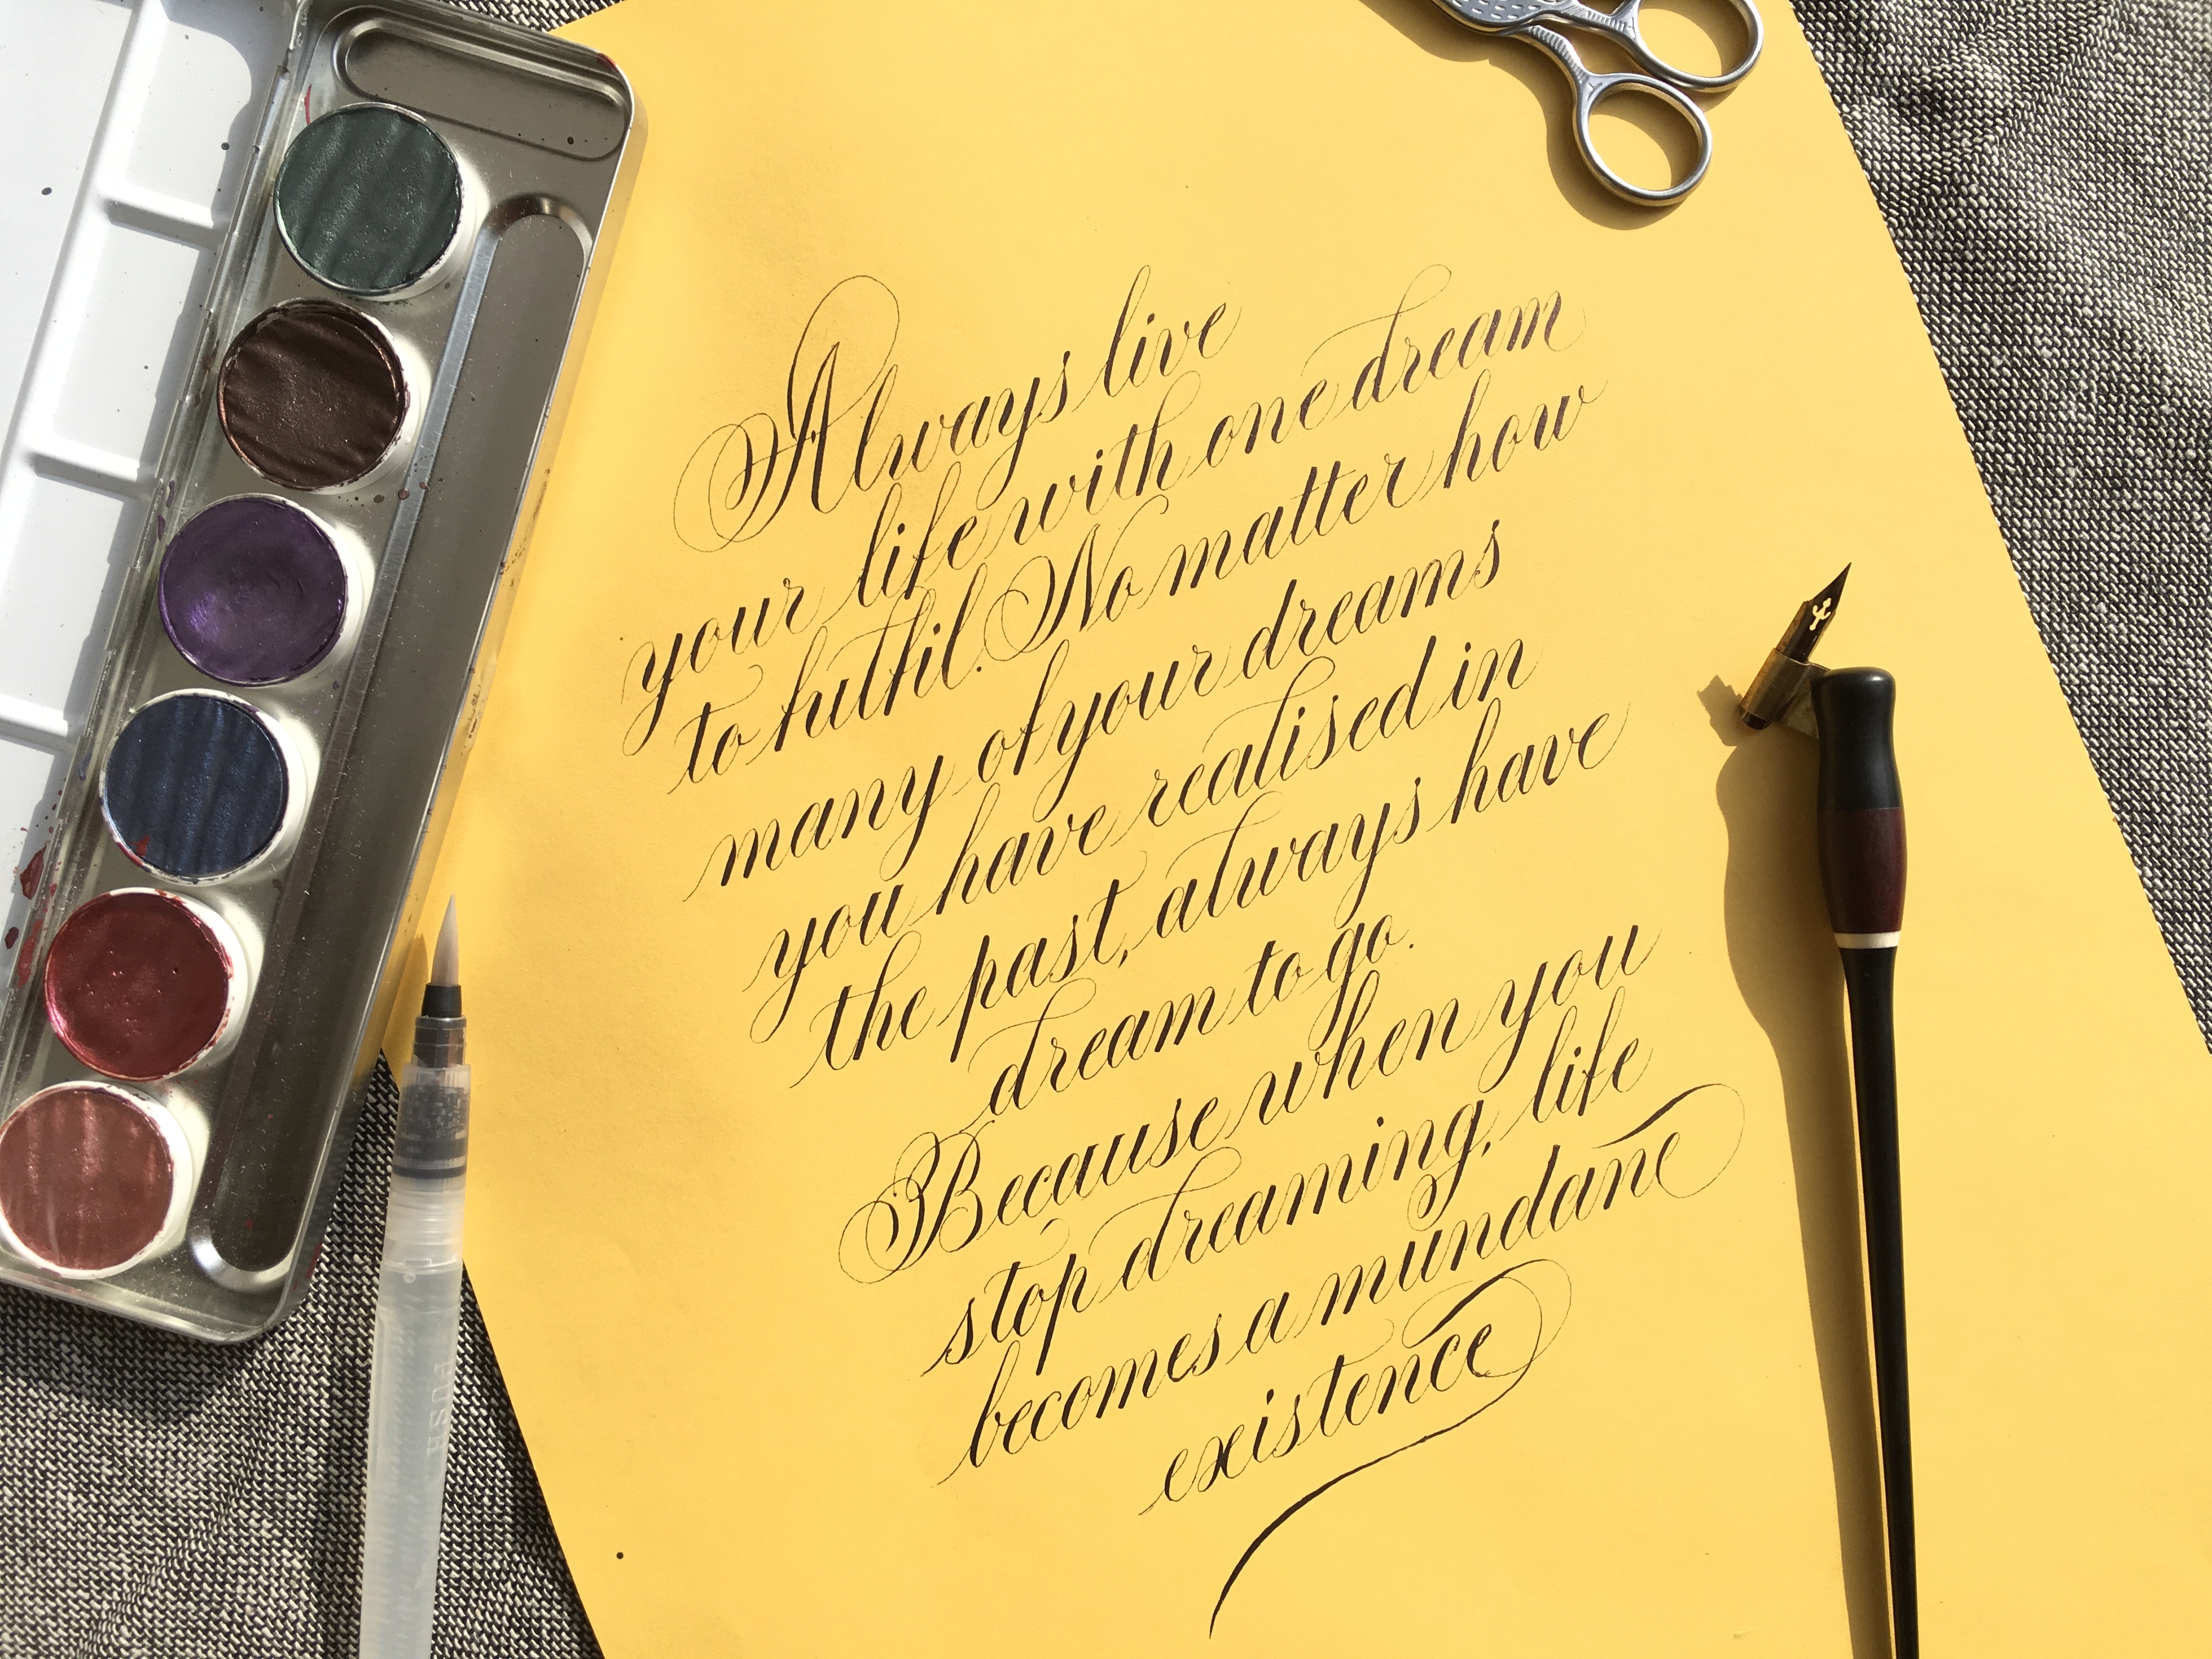 Always live
your life with one dream
to fulfil. No matter how
many of your dreams
you have realised in
the past, always have
dream to go.
Because when you
stop dreaming, life
becomes a mundane
existence
PUSH